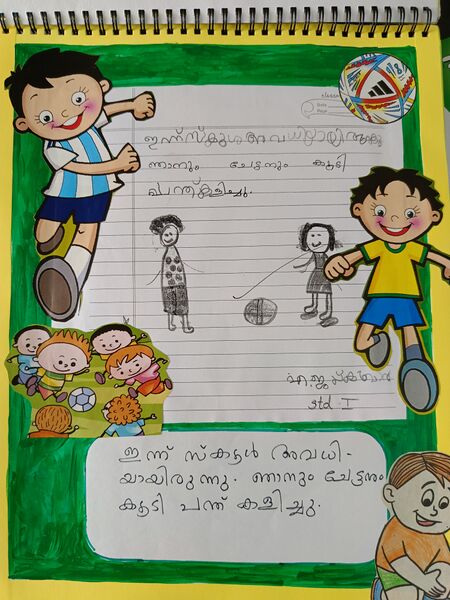 class
Date
Page
ഇന്ന് സ്കൂൾ അവധിയായിരുന്നു
ഞാനും ചേട്ടനും കൂടി
പന്ത് കളിച്ചു.
std I
ഇന്ന് സ്കൂൾ അവധി-
യായിരുന്നു. ഞാനും ചേട്ടനും
കൂടി പന്ത് കളിച്ചു.